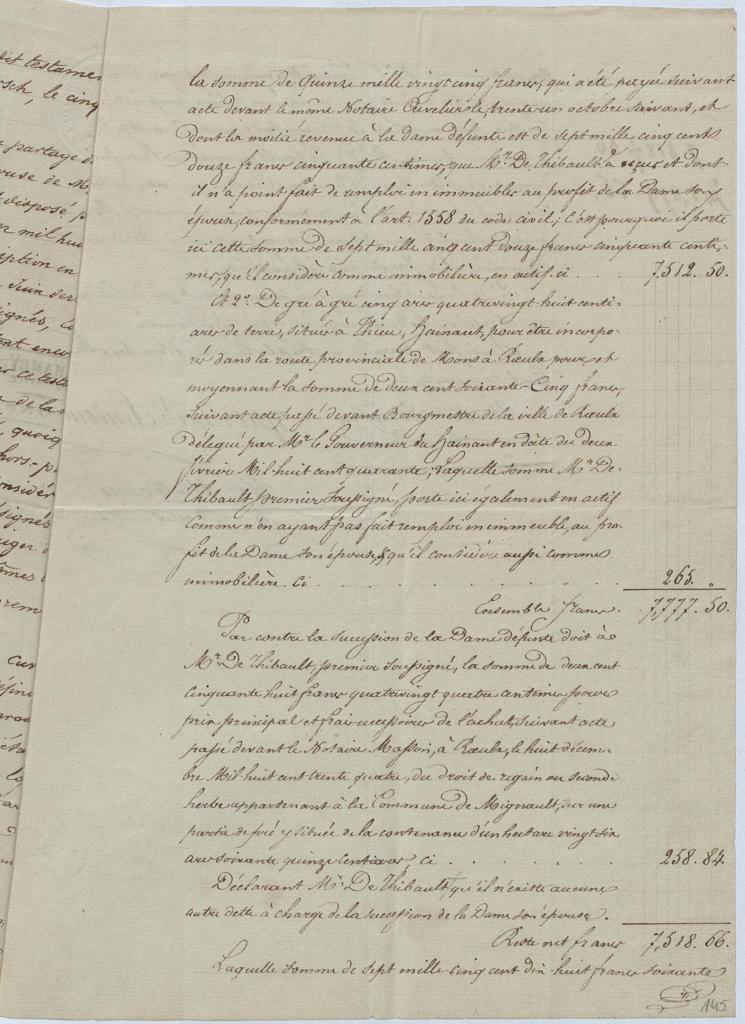 dit testamen
sch, le cinq
partage d
use de M.
disposé p
mil hui
iption en
Juin der
ignés, 
ont enco
ce testa
de la
quoiq
hors-p
onsidér
signés
uger
mes
rem
la somme de Quinze mille vingt cinq francs, qui a été payé suivant
acte devant le même Notaire Cuvelier le trente un octobre suivant, et
dont la moitié revenue à la dame défunte est de sept mille cinq cents
douze francs cinquante centimes, que Mr. De Thibault a reçus et dont
il n'a point fait de remploi en immeubles au profit de la Dame son
épouse, conformément à l'art: 1558 du code civil; C'est pourquoi il porte
ici cette somme de Sept mille cinq cent douze francs cinquante centi-
mes, qu'il considère comme immobilière, en actif. ci . . . 7,512. 50.
Et 2o. De gré à gré cinq ares quatrevingt huit centi-
ares de terre, situés à Thieu, Hainaut, pour être incorpo-
rés dans la route provinciale de Mons à Rœulx pour, et
moyennant la somme de deux cent soixante-Cinq francs,
suivant acte passé devant Bourgmestre de la ville de Rœulx
délégué par Mr. le Gouverneur du Hainaut en date du deux
février Mil-huit cent quarante; Laquelle somme Mr. De-
Thibault premier soussigné, porte ici également en actif
comme n'en ayant pas fait remploi en immeuble, au pro-
fit de la Dame son épouse, & qu'il considère aussi comme
immobilière. Ci . . . . . . . 265. "
Ensemble francs. 7,777. 50.
Par contre la succession de la Dame défunte doit à
Mr. De Thibault, premier soussigné, la somme de deux cent
cinquante huit francs quatrevingt quatre centimes pour
prix principal et frais accessoires de l'achat, suivant acte
passé devant le Notaire Masson, à Rœulx, le huit décem-
bre Mil huit cent trente quatre, du droit de regain ou seconde
herbe appartenant à la Commune de Mignault, sur une
partie de pré y située de la contenance d'un hectare vingt six
ares soixante quinze Centiares, ci . . . . . 258. 84.
Déclarant Mr. De Thibault qu'il n'existe aucune
autre dette à charge de la succession de la Dame son épouse.
Reste net francs 7,518. 66.
Laquelle somme de sept mille cinq cent dix-huit francs soixante
145